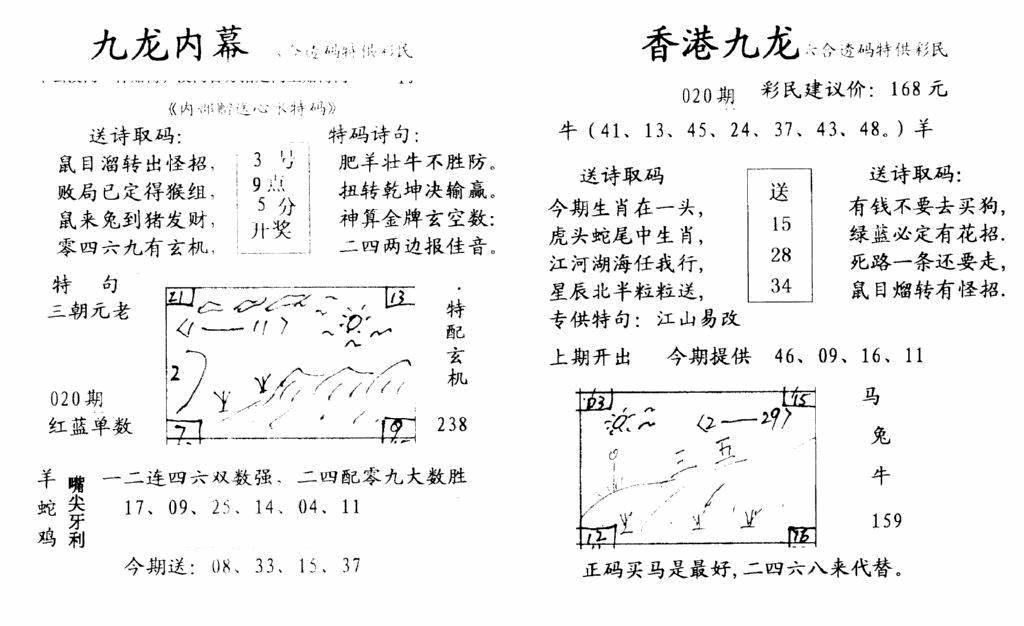 九龙内幕
六合透码特供彩民
《内部赠送心水特码》
送诗取码：
鼠目溜转出怪招，
败局已定得猴组，
鼠来兔到猪发财，
零四六九有玄机，
3 号
9点
5 分
开奖
特码诗句：
肥羊壮牛不胜防。
扭转乾坤决输赢。
神算金牌玄空数：
二四两边报佳音。
特 句
三朝元老
020期
红蓝单数
21
13
〈1——11〉
2
7
9
特配玄机
238
羊
蛇
鸡
嘴尖牙利
一二连四六双数强．二四配零九大数胜
17、09、25、14、04、11
今期送：08、33、15、37
香港九龙
六合透码特供彩民
020期 彩民建议价：168 元
牛（41、13、45、24、37、43、48。）羊
送诗取码
今期生肖在一头，
虎头蛇尾中生肖，
江河湖海任我行，
星辰北半粒粒送，
专供特句：江山易改
送
15
28
34
送诗取码：
有钱不要去买狗，
绿蓝必定有花招．
死路一条还要走，
鼠目熘转有怪招．
上期开出 今期提供 46、09、16、11
03
15
〈2——29〉
三 五
12
16
马
兔
牛
159
正码买马是最好，二四六八来代替。